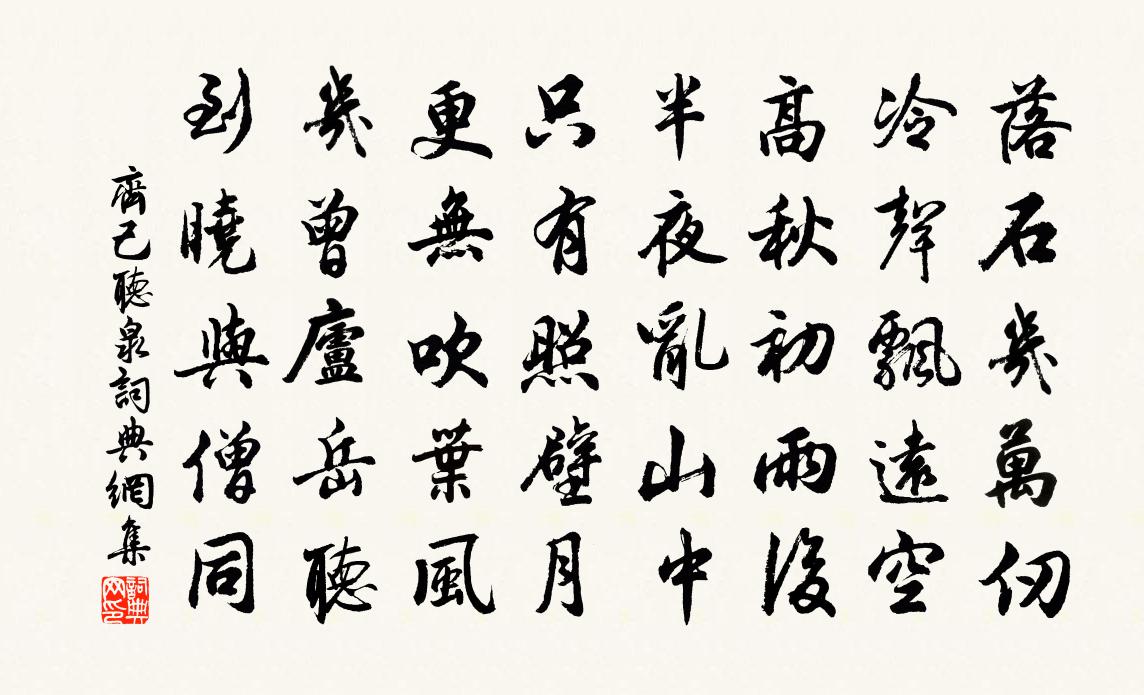 落石幾萬仞
冷聲飄遠空
高秋初雨後
半夜亂山中
只有照壁月
更無吹葉風
幾曾廬岳聽
到曉與僧同
齊己聽泉詞典網集
詞典网印